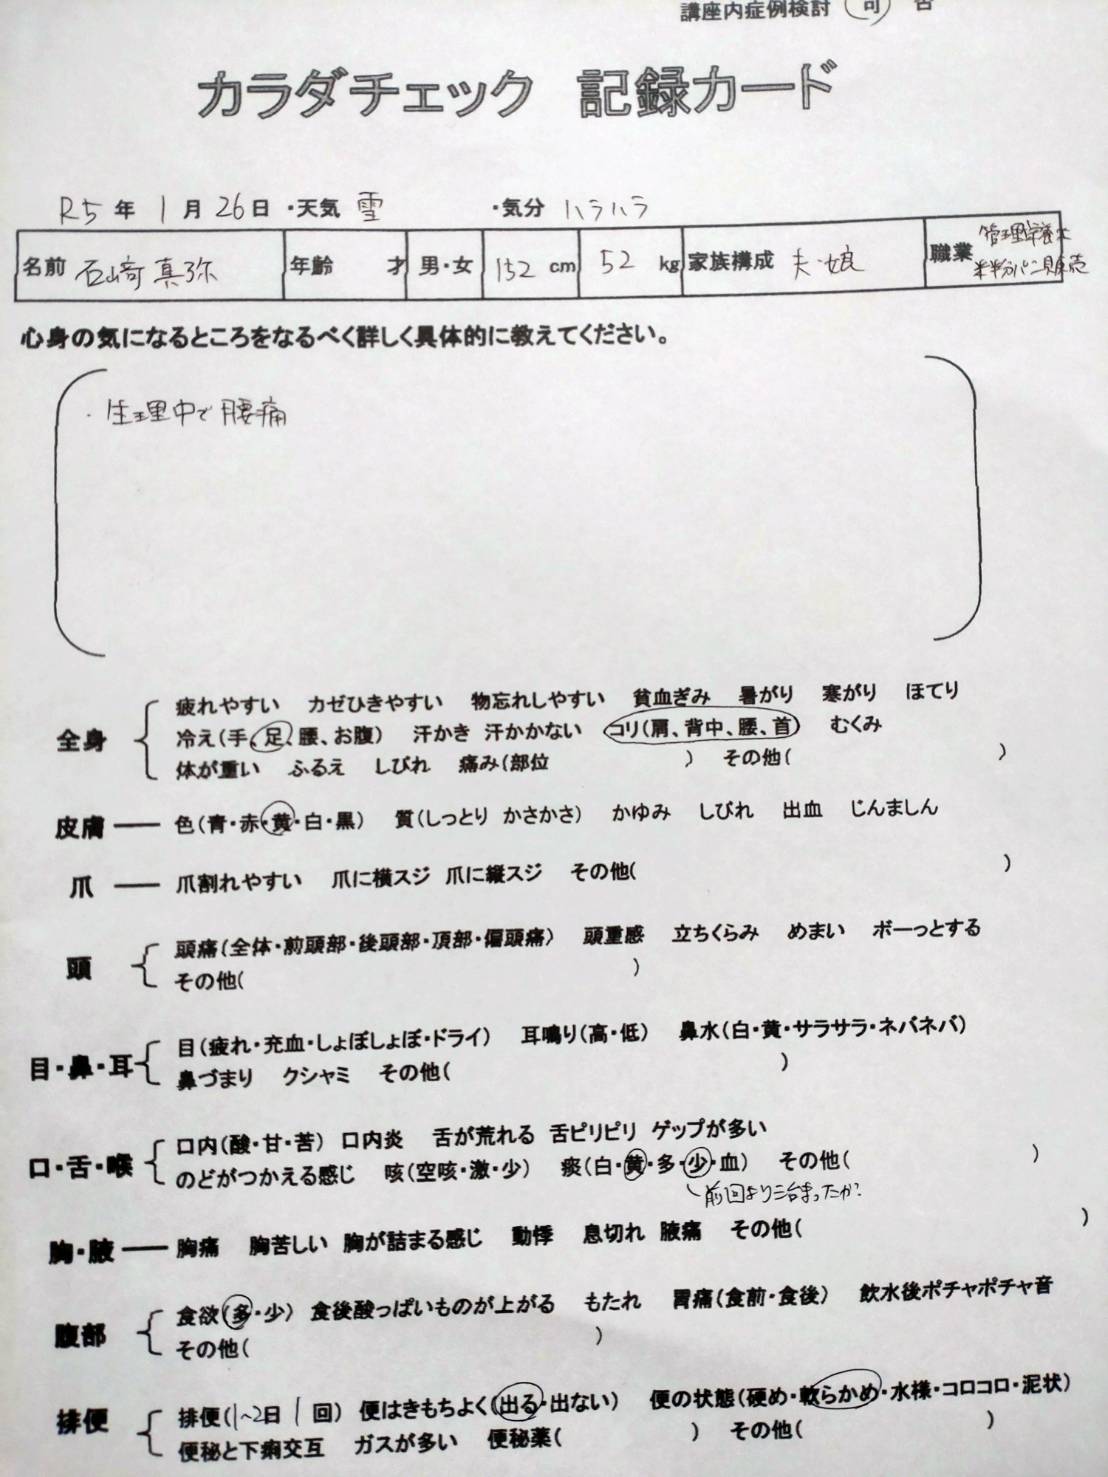 講座内症例検討 可 否
カラダチェック 記録カード
R5年 1月 26日 ・天気 雪 ・気分 ハラハラ
名前 石崎真弥 年齢 才 男・女 152 cm 52 kg 家族構成 夫・娘 職業 管理栄養士
米粉パン販売
心身の気になるところをなるべく詳しく具体的に教えてください。
・生理中で腰痛
全身
疲れやすい カゼひきやすい 物忘れしやすい 貧血ぎみ 暑がり 寒がり ほてり
冷え(手、足、腰、お腹) 汗かき 汗かかない コリ(肩、背中、腰、首) むくみ
体が重い ふるえ しびれ 痛み(部位 ) その他( )
皮膚 色(青・赤・黄・白・黒) 質(しっとり かさかさ) かゆみ しびれ 出血 じんましん
爪 爪割れやすい 爪に横スジ 爪に縦スジ その他( )
頭
頭痛(全体・前頭部・後頭部・頂部・偏頭痛) 頭重感 立ちくらみ めまい ボーっとする
その他( )
目・鼻・耳
目(疲れ・充血・しょぼしょぼ・ドライ) 耳鳴り(高・低) 鼻水(白・黄・サラサラ・ネバネバ)
鼻づまり クシャミ その他( )
口・舌・喉
口内(酸・甘・苦) 口内炎 舌が荒れる 舌ピリピリ ゲップが多い
のどがつかえる感じ 咳(空咳・激・少) 痰(白・黄・多・少・血) その他( )
前回より治まったか?
胸・腋 胸痛 胸苦しい 胸が詰まる感じ 動悸 息切れ 腋痛 その他( )
腹部
食欲(多・少) 食後酸っぱいものが上がる もたれ 胃痛(食前・食後) 飲水後ポチャポチャ音
その他( )
排便
排便(1~2日 1回) 便はきもちよく(出る・出ない) 便の状態(硬め・軟らかめ・水様・コロコロ・泥状)
便秘と下痢交互 ガスが多い 便秘薬( ) その他( )